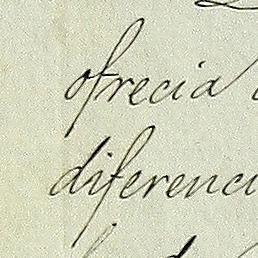 ofrecia
diferenci